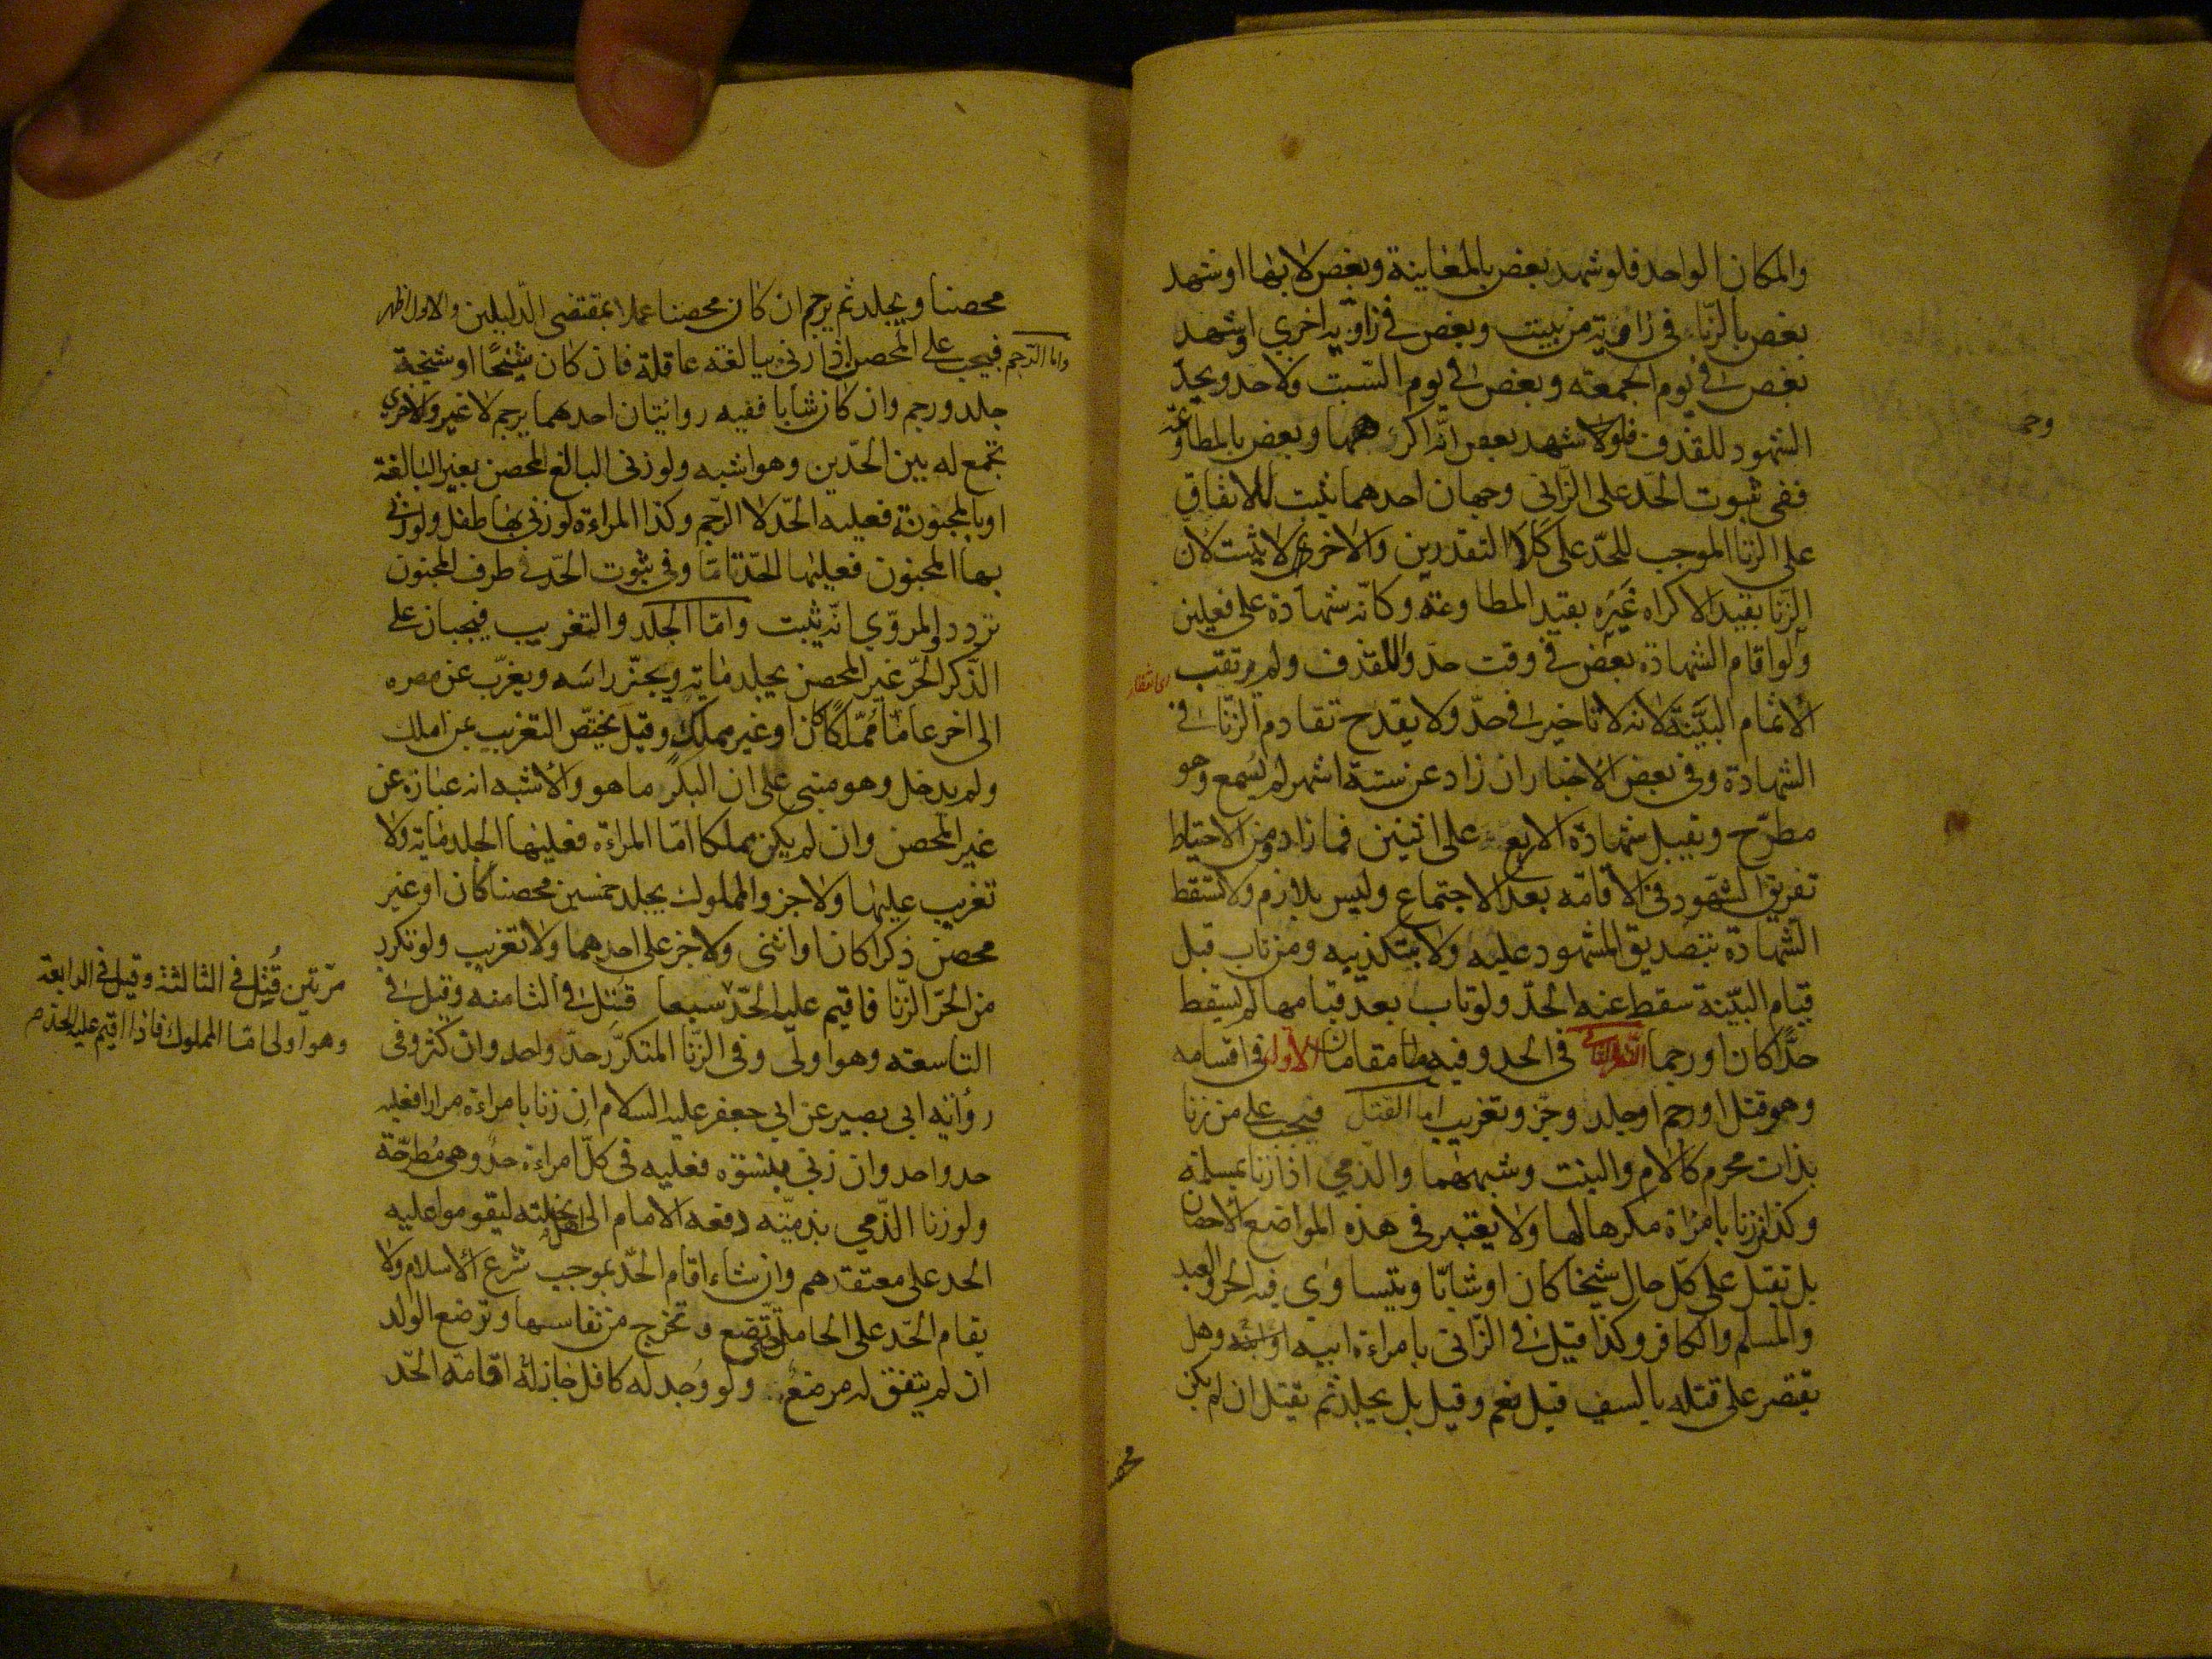 والمكان الواحد فلو شهد بعض بالمعاينة وبعض لا بها او شهد
بعض بالزنا في زاوية من بيت وبعض في زاوية اخرى او شهد
بعض في يوم الجمعة وبعض في يوم السبت فلا حد ويحد
الشهود للقذف ولو شهد بعض انه اكرهها وبعض بالمطاوعة
ففي ثبوت الحد على الزاني وجهان احدهما يثبت للاتفاق
على الزنا الموجب للحد على كلا التقديرين والاخرى لا يثبت لان
الزنا بقيد الاكراه غيره بقيد المطاوعة وكانه شهادة على فعلين
ولو اقام الشهادة بعض في وقت حدوا للقذف ولم يرتقب
اى انتظار
الاتمام البينة لانه لا تاخير في حد ولا يقدح تقادم الزنا في
الشهادة وفي بعض الاخبار ان زاد عن ستة اشهر لم يسمع وهو
مطرح وتقبل شهادة الاربع على اثنين فما زاد ومن الاحتياط
تفريق الشهود في الاقامة بعد الاجتماع وليس بلازم ولا تسقط
الشهادة بتصديق المشهود عليه ولا بتكذيبه ومن تاب قبل
قيام البينة سقط عنه الحد ولو تاب بعد قيامها لم يسقط
حدا كان او رجما النظر الثاني في الحد وفيه مقامان الاول في اقسامه
وهو قتل او رجم او جلد وجز وتغريب اما القتل فيجب على من زنا
بذات محرم كالام والبنت وشبههما والذمي اذا زنا بمسلمة
وكذا من زنا بامراة مكرها لها ولا يعتبر في هذه المواضع الاحصان
بل يقتل على كل حال شيخا كان او شابا ويتساوى فيه الحر والعبد
والمسلم والكافر وكذا قيل في الزاني بامراءة ابيه او ابنه وهل
يقتصر على قتله بالسيف قيل نعم وقيل بل يجلد ثم يقتل ان لم يكن
محصنا ويجلد ثم يرجم ان كان محصنا عملا بمقتضى الدليلين والاول اظهر
واما الرجم فيجب على المحصن اذا زنى ببالغة عاقلة فان كان شيخا او شيخة
جلد ورجم وان كان شابا ففيه روايتان احدهما يرجم لا غير والاخرى
تجمع له بين الحدين وهو اشبه ولو زنى البالغ المحصن بغير البالغة
او بالمجنونة فعليه الحد لا الرجم وكذا المراءة لو زنى بها طفل ولو زنى
بها المجنون فعليها الحد تاما وفي ثبوت الحد في طرف المجنون
تردد والمروي انه يثبت واما الجلد والتغريب فيجبان على
الذكر الحر غير المحصن يجلد ماية ويجز راسه ويغرب عن مصره
الى اخر عاما مملكا كان او غير مملك وقيل يختص التغريب عن املك
ولم يدخل وهو مبني على ان البكر ما هو والاشبه انه عبارة عن
غير المحصن وان لم يكن مملكا اما المراءة فعليها الجلد ماية ولا
تغريب عليها ولا جز والمملوك يجلد خمسين محصنا كان او غير
محصن ذكرا كان او انثى ولا جز على احدهما ولا تغريب ولو تكرر
من الحر الزنا فاقيم عليه الحد
مرتين قُتِل في الثالثة وقيل في الرابعة
وهو اولى اما المملوك فاذا اقيم عليه الحد
سبعا قتل في الثامنة وقيل في
التاسعة وهو اولى وفي الزنا المتكرر حد واحد وان كثر وفي
رواية ابي بصير عن ابي جعفر عليه السلام ان زنا بامراءة مرارا فعليه
حد واحد وان زنى بنسوة فعليه في كل امراءة حد وهي مُطرحة
ولو زنا الذمي بذمية دفعه الامام الى اهل نحلته ليقوموا عليه
الحد على معتقدهم وان شاء اقام الحد بموجب شرع الاسلام ولا
يقام الحد على الحامل حتى تضع وتخرج من نفاسها وترضع الولد
ان لم يتفق له مرضع ولو وُجد له كافل جاز له اقامة الحد